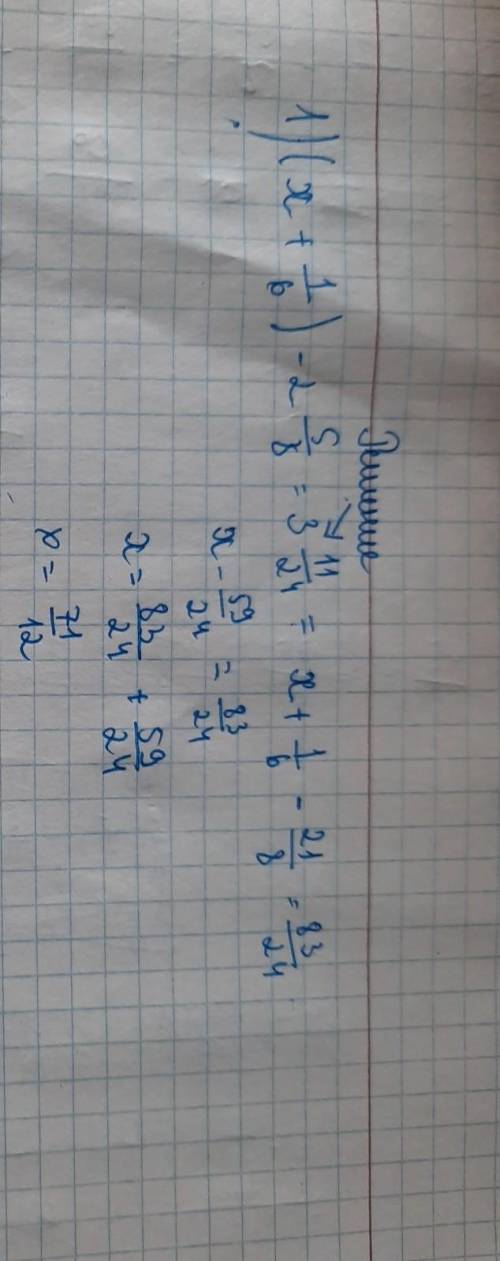 Решение
1) (x + 1/6) - 2 5/8 = 3 11/24 = x + 1/6 - 21/8 = 83/24
x - 59/24 = 83/24
x = 83/24 + 59/24
x = 71/12